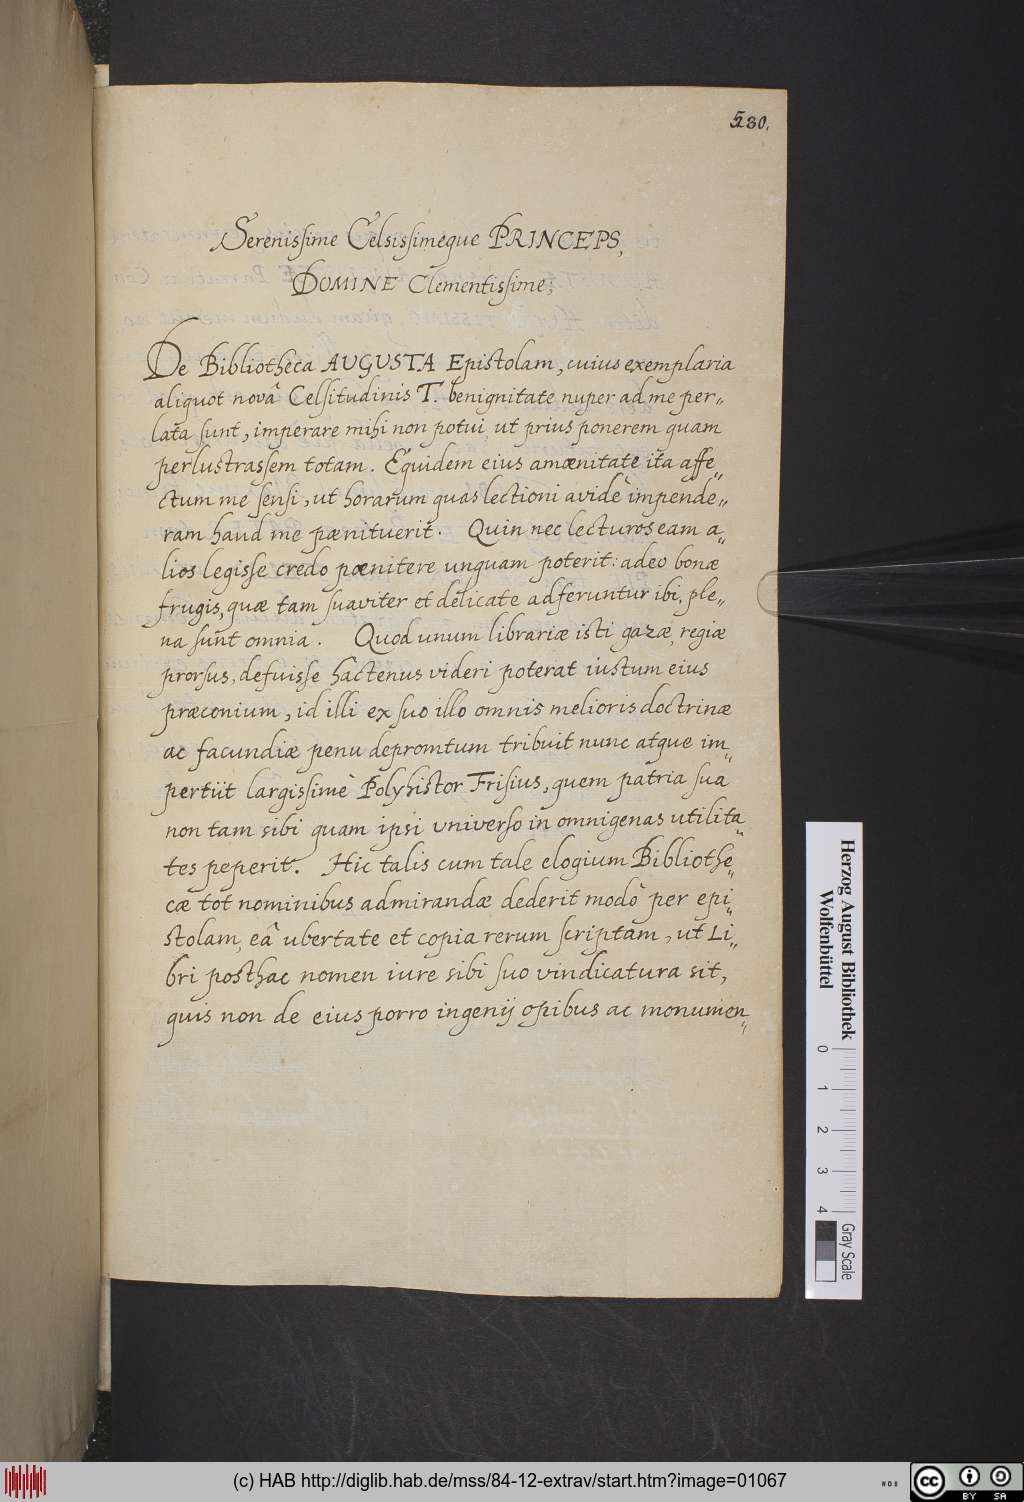 530.
Serenissime Celsissimeque PRINCEPS,
DOMINE Clementissime;
De Bibliotheca AUGUSTA Epistolam, cuius exemplaria
aliquot novâ Celsitudinis T. benignitate nuper ad me per„
lata sunt, imperare mihi non potui, ut prius ponerem quam
perlustrassem totam. Equidem eius amœnitate ita affe„
ctum me sensi, ut horarum quas lectioni avidè impende„
ram haud me pœnituerit. Quin nec lecturos eam a„
lios legisse credo pœnitere unquam poterit: adeo bonæ
frugis, quæ tam suaviter et delicate adferuntur ibi, ple„
na sunt omnia. Quod unum librariæ isti gazæ, regiæ
prorsus, defuisse hactenus videri poterat iustum eius
præconium, id illi ex suo illo omnis melioris doctrinæ
ac facundiæ penu depromtum tribuit nunc atque im„
pertiit largissimè Polyhistor Frisius, quem patria sua
non tam sibi quam ipsi universo in omnigenas utilita„
tes peperit. Hic talis cum tale elogium Bibliothe„
cæ tot nominibus admirandæ dederit modò per epi„
stolam, eâ ubertate et copia rerum scriptam, ut Li„
bri posthac nomen iure sibi suo vindicatura sit,
quis non de eius porro ingenij opibus ac monumen„
Herzog August Bibliothek
Wolfenbüttel
0 1 2 3 4
Gray Scale
(c) HAB http://diglib.hab.de/mss/84-12-extrav/start.htm?image=01067
cc BY SA